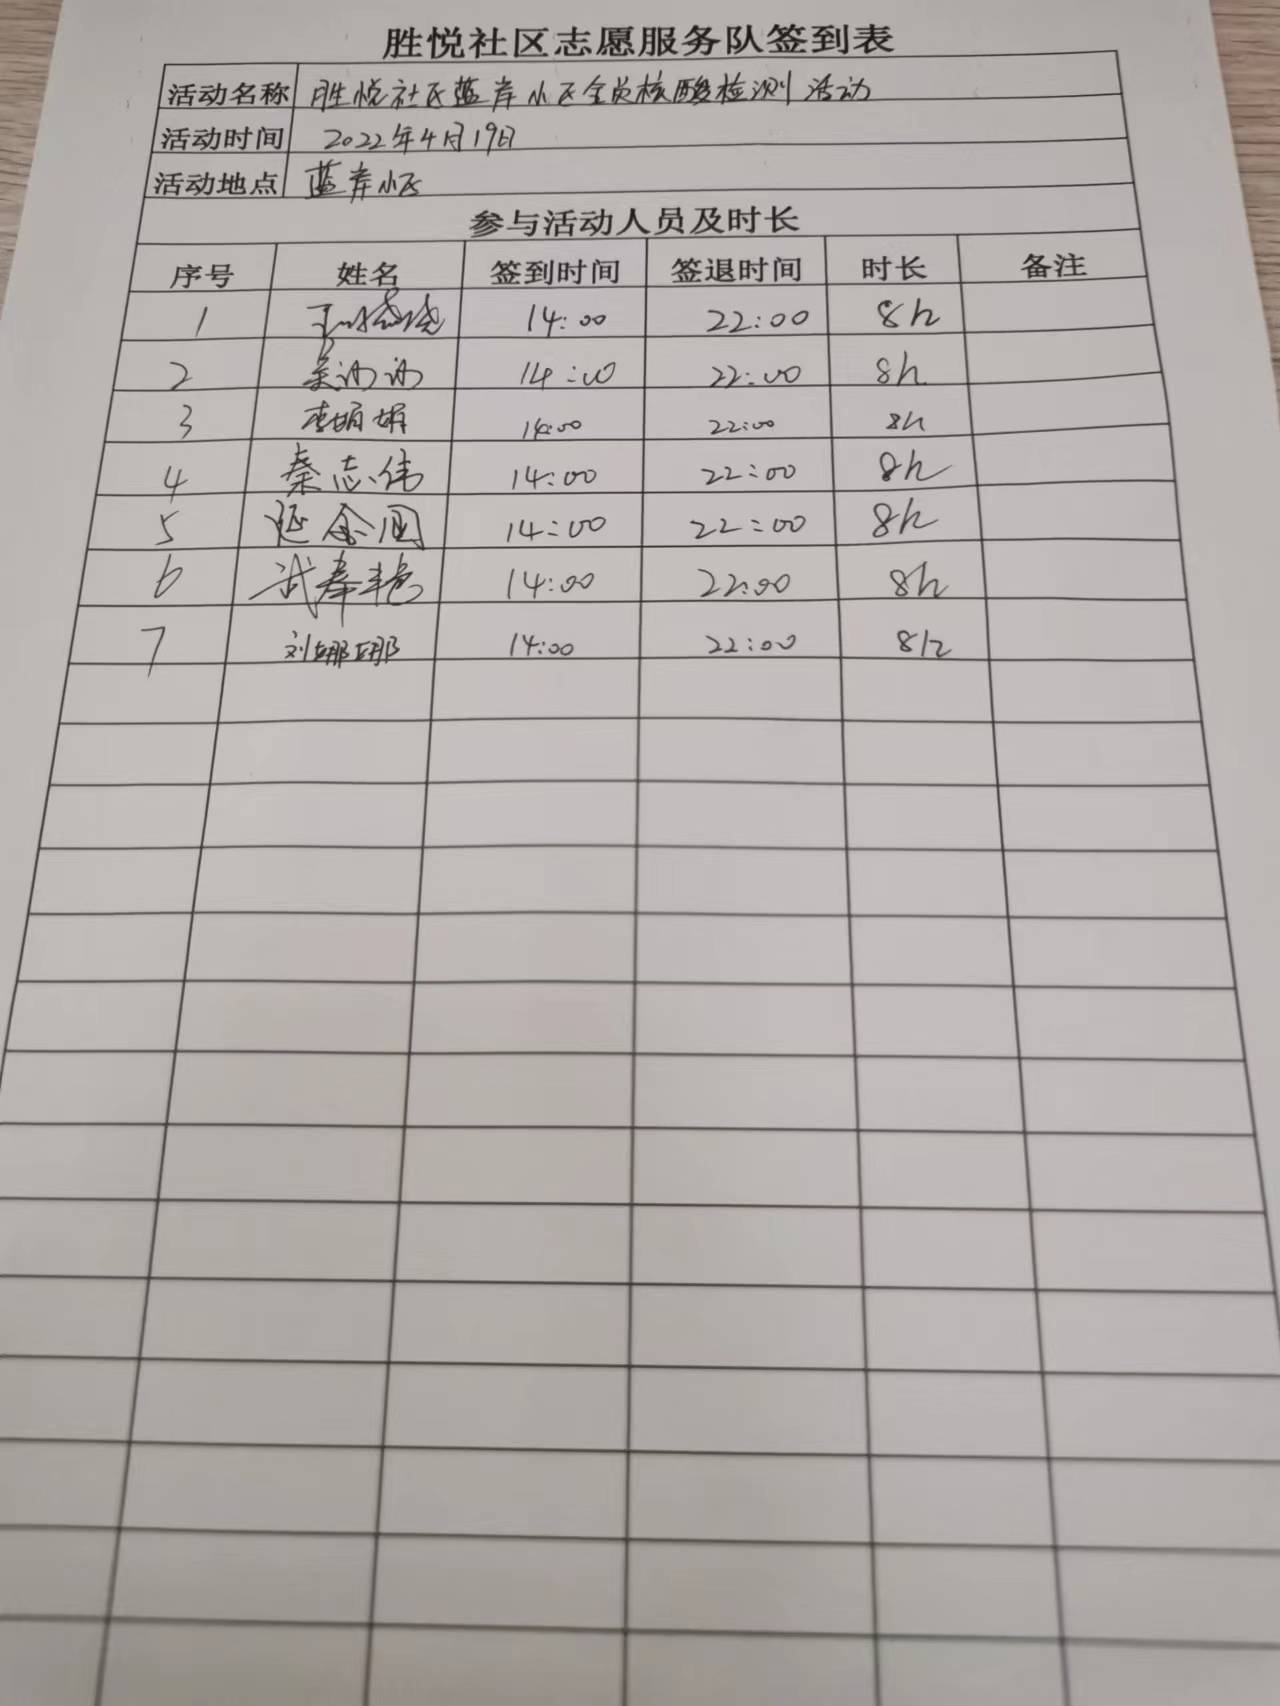 胜悦社区志愿服务队签到表
活动名称 胜悦社区蓝岸小区全员核酸检测活动
活动时间 2022年4月19日
活动地点 蓝岸小区
参与活动人员及时长
序号 姓名 签到时间 签退时间 时长 备注
1 14:00 22:00 8h
2 14:00 22:00 8h
3 李娟娟 14:00 22:00 8h
4 秦志伟 14:00 22:00 8h
5 延金国 14:00 22:00 8h
6 武春艳 14:00 22:00 8h
7 刘娜娜 14:00 22:00 8h